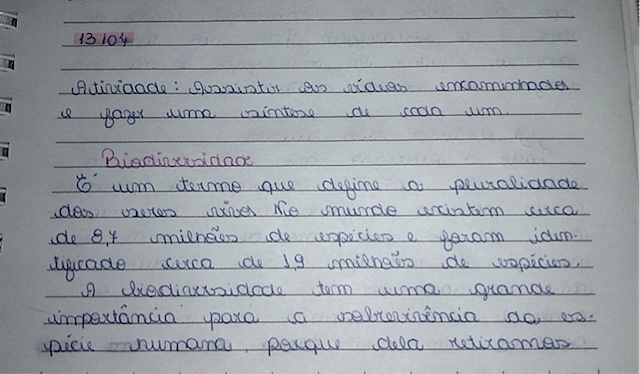 13/04
Atividade: Assistir os vídeos encaminhados
e fazer uma síntese de cada um.
Biodiversidade
É um termo que define a pluralidade
dos seres vivos No mundo existem cerca
de 8,7 milhões de espécies e foram iden-
tificado cerca de 1,9 milhões de espécies.
A biodiversidade tem uma grande
importância para a sobrevivência da es-
pécie humana, porque dela retiramos